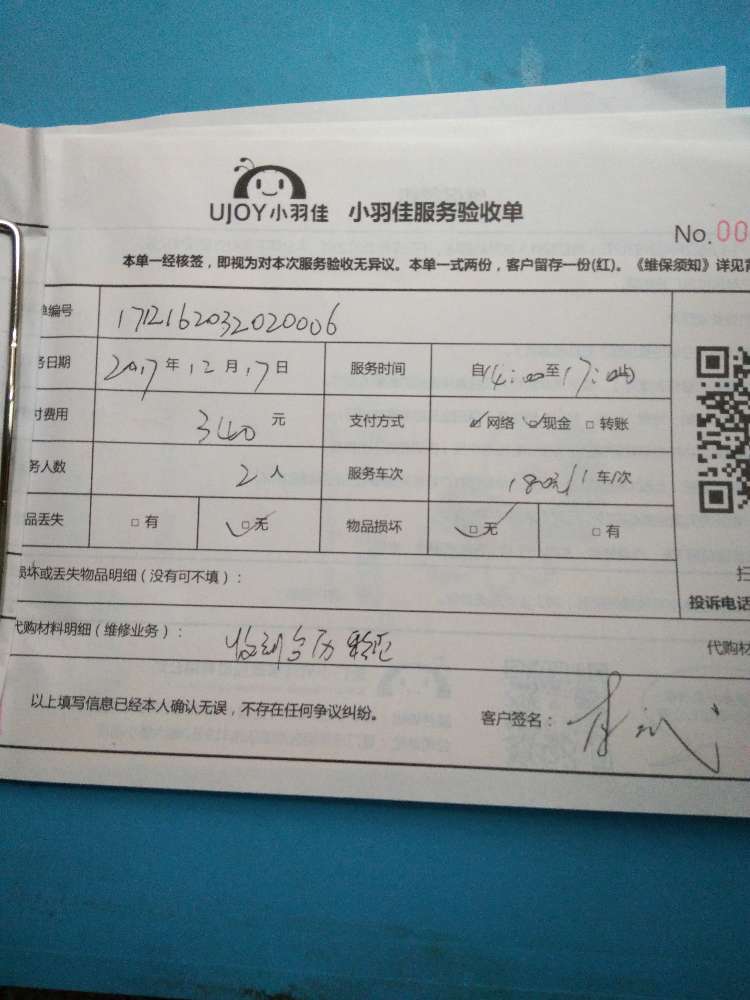 UJOY小羽佳 小羽佳服务验收单
No.00
本单一经核签，即视为对本次服务验收无异议。本单一式两份，客户留存一份(红)。《维保须知》详见
单编号 1712162032020006
务日期 2017年12月17日 服务时间 自14:00至17:00时
付费用 340元 支付方式 ☑网络 ☑现金 □转账
务人数 2人 服务车次 1车/次
品丢失 □有 ☑无 物品损坏 ☑无 □有
损坏或丢失物品明细（没有可不填）：
投诉电话
代购材料明细（维修业务）： 收到台历 代购材
以上填写信息已经本人确认无误，不存在任何争议纠纷。 客户签名：